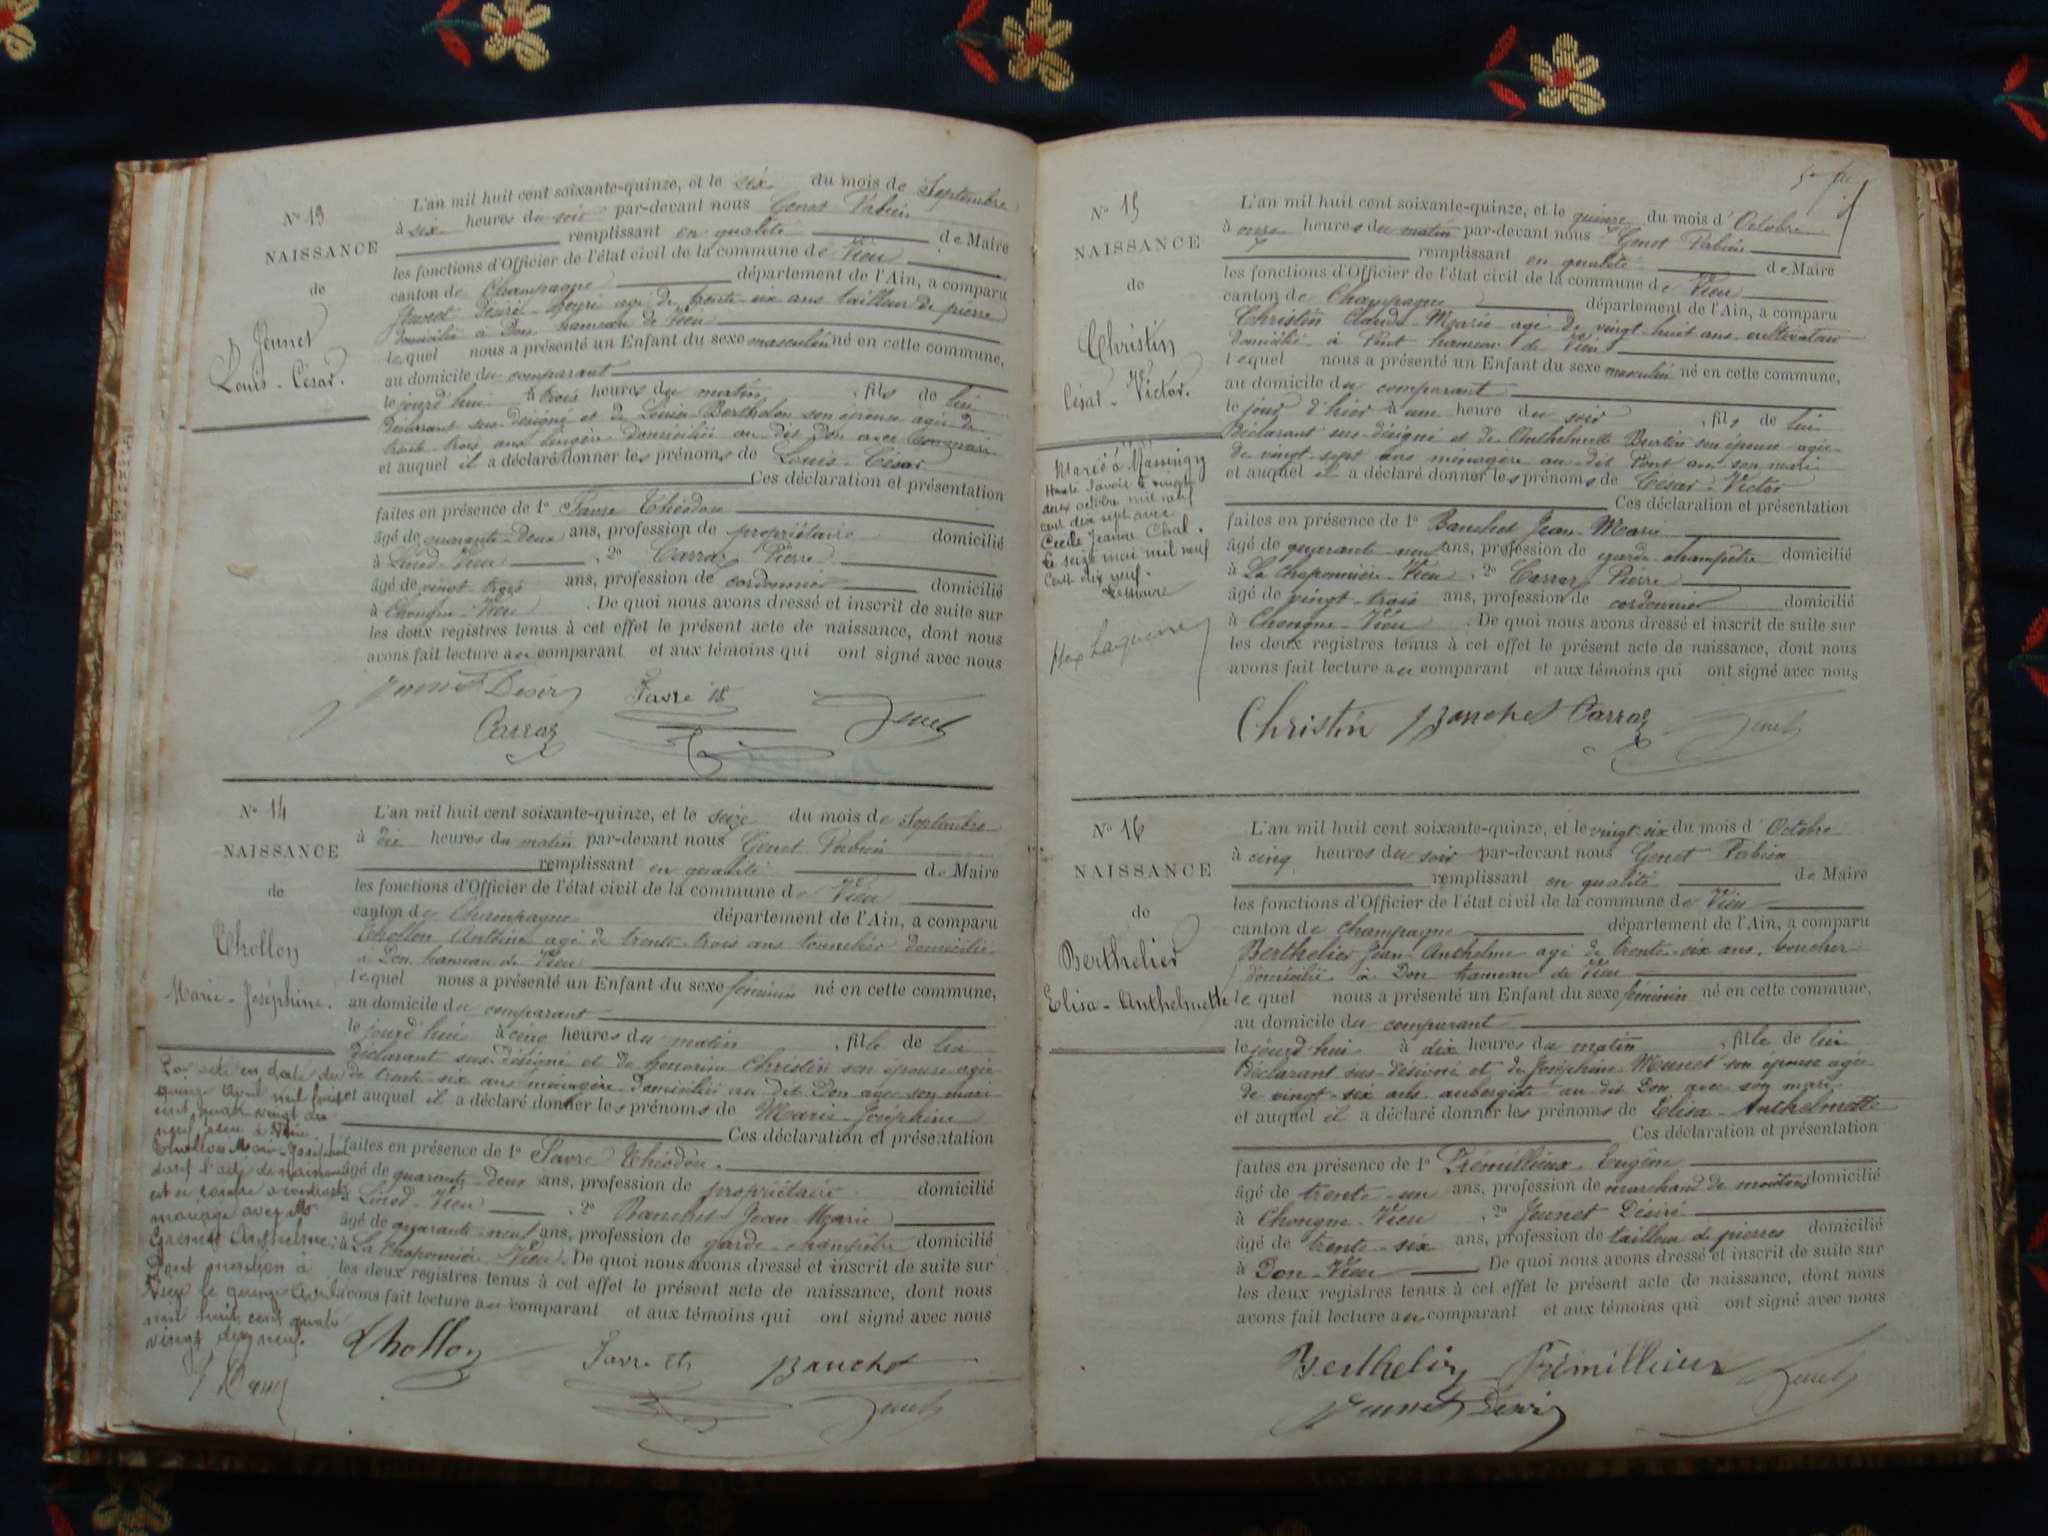 N° 13
NAISSANCE
de
Jeunet
Louis-César.
L'an mil huit cent soixante-quinze, et le six du mois de Septembre
à six heures du soir par-devant nous Genet Fabien
remplissant en qualité de Maire
les fonctions d'Officier de l'état civil de la commune de Vieu
canton de Champagne département de l'Ain, a comparu
Jeunet Désiré agé de trente-six ans tailleur de pierre
domicilié à Don hameau de Vieu
lequel nous a présenté un Enfant du sexe masculin né en cette commune,
au domicile du comparant
le jourd'hui à trois heures du matin, fils de lui
Déclarant sus-désigné et de Louise Berthelon son épouse agée de
trente-trois ans lingère domiciliée au dit Don avec son mari
et auquel il a déclaré donner les prénoms de Louis-César
Ces déclaration et présentation
faites en présence de 1° Favre Théodore
âgé de quarante-deux ans, profession de propriétaire domicilié
à Linod-Vieu, 2° Carraz Pierre
âgé de vingt-trois ans, profession de cordonnier domicilié
à Chongne-Vieu. De quoi nous avons dressé et inscrit de suite sur
les deux registres tenus à cet effet le présent acte de naissance, dont nous
avons fait lecture au comparant et aux témoins qui ont signé avec nous
Jeunet Désiré Favre th Genet
Carraz
N° 14
NAISSANCE
de
Thollon
Marie-Joséphine.
L'an mil huit cent soixante-quinze, et le seize du mois de Septembre
à dix heures du matin par-devant nous Genet Fabien
remplissant en qualité de Maire
les fonctions d'Officier de l'état civil de la commune de Vieu
canton de Champagne département de l'Ain, a comparu
Thollon Antoine agé de trente-trois ans tonnelier domicilié
à Don hameau de Vieu
lequel nous a présenté un Enfant du sexe féminin né en cette commune,
au domicile du comparant
le jourd'hui à cinq heures du matin, fille de lui
Déclarant sus-désigné et de Honorine Christin son épouse agée
de trente-six ans ménagère domiciliée au dit Don avec son mari
et auquel il a déclaré donner les prénoms de Marie-Joséphine
Ces déclaration et présentation
faites en présence de 1° Favre Théodore.
âgé de quarante-deux ans, profession de propriétaire domicilié
à Linod-Vieu, 2° Banchet Jean-Marie
âgé de quarante-neuf ans, profession de garde-champêtre domicilié
à La Chaponnière Vieu. De quoi nous avons dressé et inscrit de suite sur
les deux registres tenus à cet effet le présent acte de naissance, dont nous
avons fait lecture au comparant et aux témoins qui ont signé avec nous
Thollon Favre th Banchet
Genet
Par acte en date du
quinze Avril mil huit
cent quatre vingt dix
neuf
Thollon Marie-Joséphine
dont l'acte de naissance
est ci contre a contracté
mariage avec Mr
Grenier Anthelme:
Dont mention à
Vieu le quinze Avril
mil huit cent quatre
vingt dix neuf.
N° 15
NAISSANCE
de
Christin
César-Victor.
L'an mil huit cent soixante-quinze, et le quinze du mois d'Octobre
à onze heures du matin par-devant nous Genet Fabien
remplissant en qualité de Maire
les fonctions d'Officier de l'état civil de la commune de Vieu
canton de Champagne département de l'Ain, a comparu
Christin Claude-Marie agé de vingt-huit ans cultivateur
domicilié à Pont hameau de Vieu
lequel nous a présenté un Enfant du sexe masculin né en cette commune,
au domicile du comparant
le jour d'hier à une heure du soir, fils de lui
Déclarant sus-désigné et de Anthelmette Burtin son épouse agée
de vingt-sept ans ménagère au dit Pont avec son mari
et auquel il a déclaré donner les prénoms de César-Victor
Ces déclaration et présentation
faites en présence de 1° Banchet Jean-Marie
âgé de quarante-neuf ans, profession de garde champêtre domicilié
à La Chaponnière-Vieu, 2° Carraz Pierre
âgé de vingt-trois ans, profession de cordonnier domicilié
à Chongne-Vieu. De quoi nous avons dressé et inscrit de suite sur
les deux registres tenus à cet effet le présent acte de naissance, dont nous
avons fait lecture au comparant et aux témoins qui ont signé avec nous
Christin Banchet Carraz Genet
Marié à Massingy
Haute Savoie le vingt
deux octobre mil neuf
cent dix sept avec
Cécile Jeanne Chal.
Le seize mai mil neuf
cent dix neuf.
Le Maire
N° 16
NAISSANCE
de
Berthelier
Elisa-Anthelmette
L'an mil huit cent soixante-quinze, et le vingt-six du mois d'Octobre
à cinq heures du soir par-devant nous Genet Fabien
remplissant en qualité de Maire
les fonctions d'Officier de l'état civil de la commune de Vieu
canton de Champagne département de l'Ain, a comparu
Berthelier Jean-Anthelme agé de trente-six ans, boucher
domicilié à Don hameau de Vieu
lequel nous a présenté un Enfant du sexe féminin né en cette commune,
au domicile du comparant
le jourd'hui à dix heures du matin, fille de lui
Déclarant sus-désigné et de Joséphine Monnet son épouse agée
de vingt-six ans aubergiste au dit Don avec son mari
et auquel il a déclaré donner les prénoms de Elisa-Anthelmette
Ces déclaration et présentation
faites en présence de 1° Trémillieux Eugène
âgé de trente-un ans, profession de marchand de moutons domicilié
à Chongne-Vieu, 2° Jeunet Désiré
âgé de trente-six ans, profession de tailleur de pierres domicilié
à Don-Vieu De quoi nous avons dressé et inscrit de suite sur
les deux registres tenus à cet effet le présent acte de naissance, dont nous
avons fait lecture au comparant et aux témoins qui ont signé avec nous
Berthelier Trémillieux Genet
Jeunet Désiré